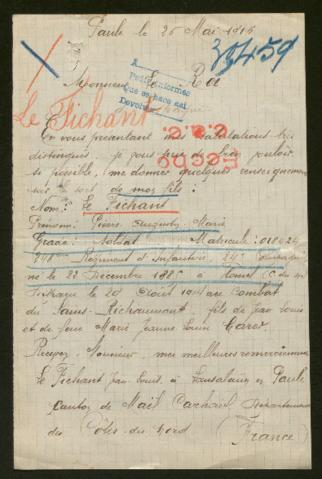 Paule le 26 Mai 1916
39459
Monsieur Le Roi
A
Petit informes
que se hace aqui
Devolver
Le Fichant
En vous présentant mes salutations
distinguées, je vous prie de bien vouloir
si possible, me donner quelques renseignements
sur le sort de mon fils:
Nom: Le Fichant
Prénoms: Pierre Auguste Marie
Grade: Soldat Matricule: 018024
248me Régiment d'Infanterie, 24e
né le 22 Décembre 1885 à
disparu le 29 Août 1914 au Combat
du Sains-Richaumont, fils de Jean Louis
et de feue Marie Jeanne
Recevez, Monsieur, mes meilleurs remerciements
Le Fichant Jean Louis, à Paule
Canton de Maël Carhaix, Département
des Côtes-du-Nord (France)